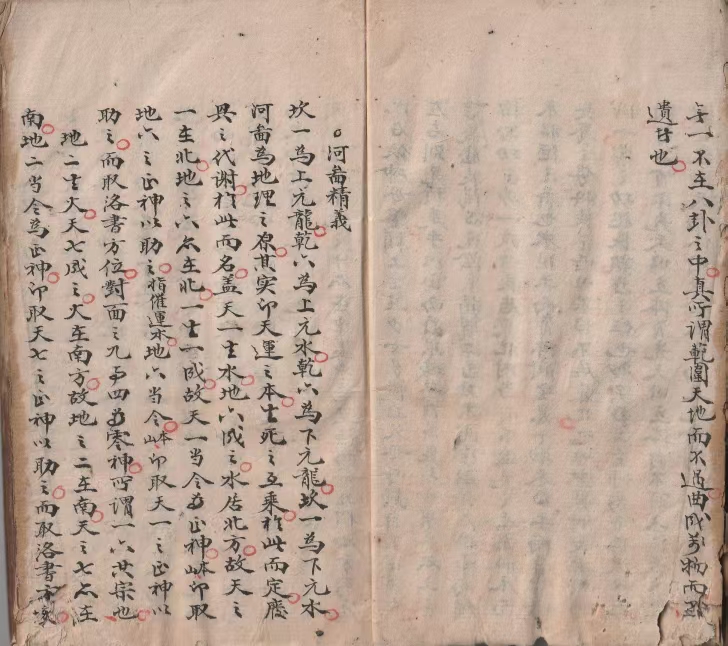 無一不在八卦之中真所謂範圍天地而不過曲成萬物而
遺者也
河畨精義
坎一為上元龍乾六為上元水乾六為下元龍坎一為下元水
河畨為地理之原其实即天運之本生死之互乘於此而定勝
具之代谢於此而名盖天一生水地六成之水居北方故天之
一在北地之六亦在北一生一成故天一当令為正神本山即取
地六之正神以助之指催運本地六当令本山即取天一之正神以
助之而取洛書方位對面之九為四為零神所謂一六共宗也
地二生火天七成之火在南方故地之二在南天之七亦在
南地二当令為正神即取天七之正神以助之而取洛書方